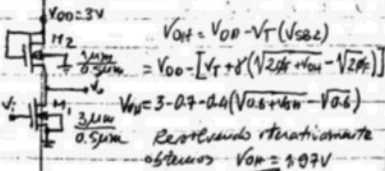 VDD = 3V
M2
1μm
0.5μm
Vo
Vi
M1
3μm
0.5μm
VOH = VDD - VT (VSB2)
= VDD - [VT + γ(√2ϕF + VOH - √2ϕF)]
VOH = 3 - 0.7 - 0.4(√0.6 + VOH - √0.6)
Resolviendo iterativamente
obtenemos VOH = 1.97V